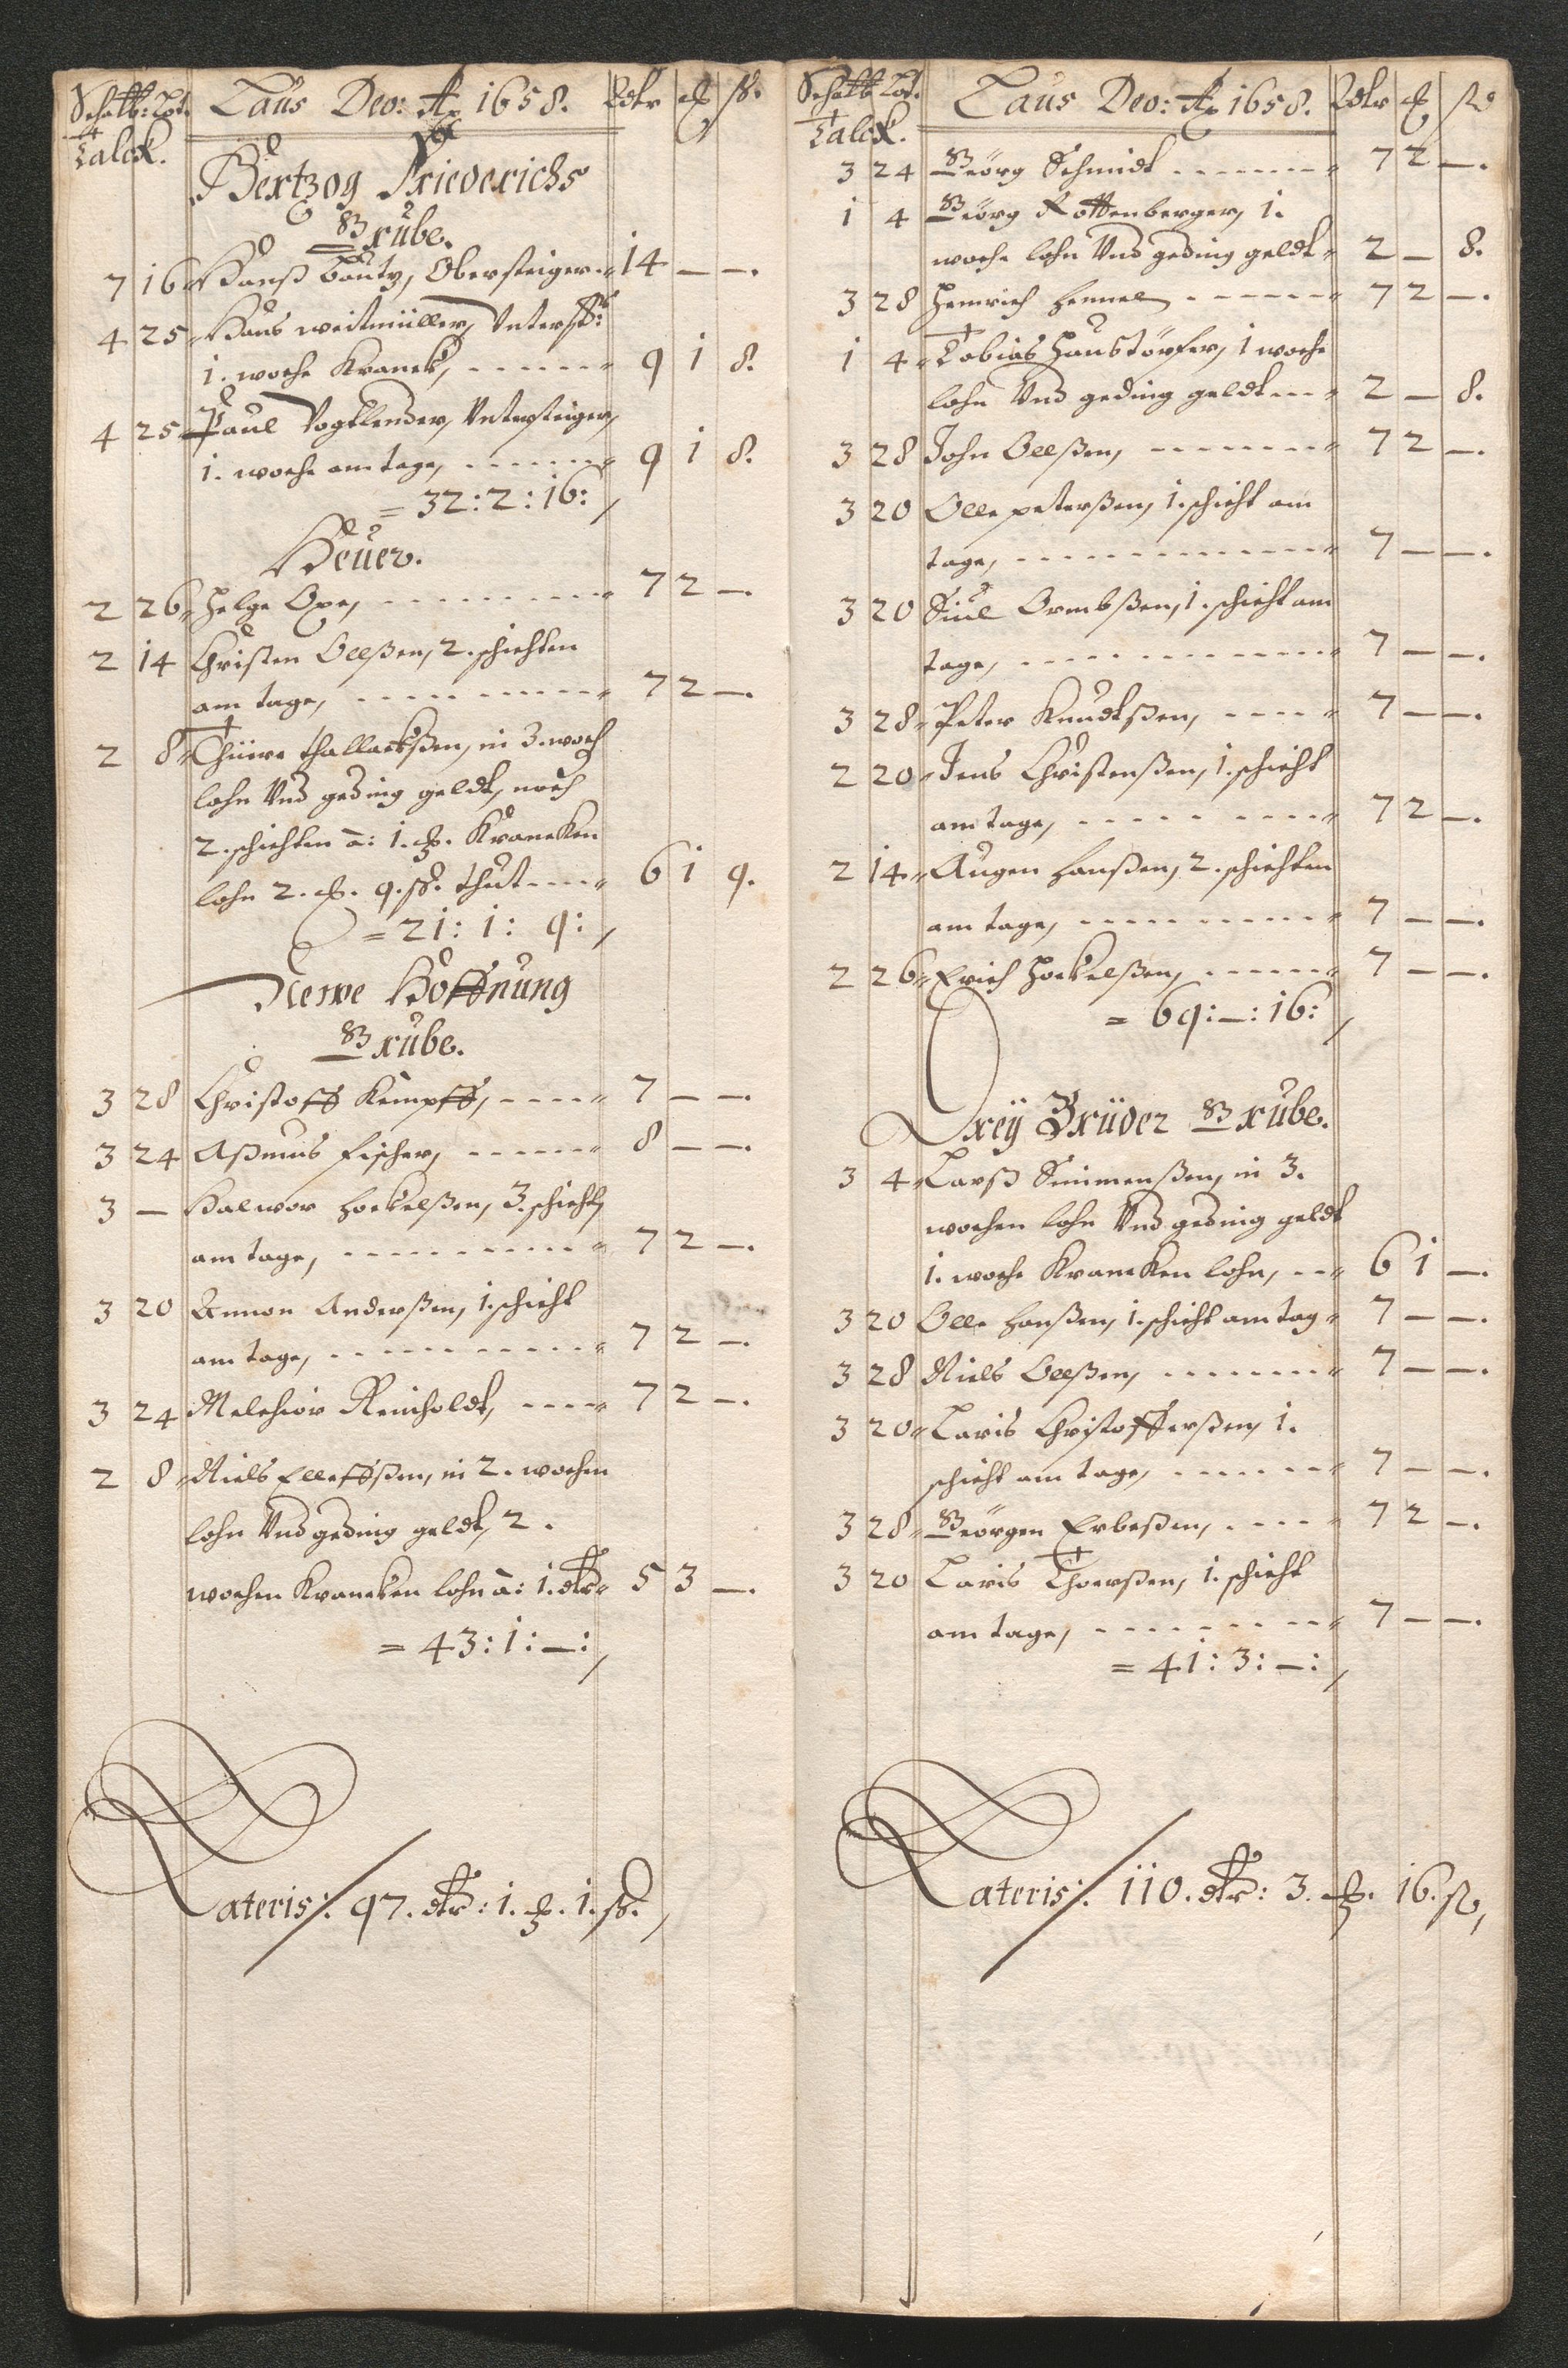 Schatb: Lot. Laus Deo: Ao 1658. Rdlr ℔ ß.
Talck.
Hertzog Friederichs
Grube.
7 16 Hanß Bautz, Obersteiger. 14 — —.
4 25 Hans weitmüller, Unterst:
1. woche Kranck, 9 1 8.
4 25 Paul Vogtlender, Untersteiger,
1. woche am tage, 9 1 8.
= 32: 2: 16:
Heuer.
2 26 Helge Oxe, 7 2 —.
2 14 Christen Ollßen, 2. schichten
am tage, 7 2 —.
2 8 Thüwe thallackßen, in 3. woch
lohn Und geding geldt, noch
2. schichten à: 1. ℔. Krancken
lohn 2. ℔. 9. ß. thut 6 1 9.
= 21: 1: 9:
Newe Hoffnung
Grube.
3 28 Christoff Kempff, 7 — —.
3 24 Aßmus Fischer, 8 — —.
3 — Halwor Hockelßen, 3. schicht
am tage, 7 2 —.
3 20 Ammon Anderßen, 1. schicht
am tage, 7 2 —.
3 24 Melchior Reinholdt, 7 2 —.
2 8 Niels Elleffßen, in 2. wochen
lohn Und geding geldt, 2.
wochen Krancken lohn à: 1. dlr 5 3 —.
= 43: 1: —:
Lateris: 97. dlr: 1. ℔. 1. ß.
Schatb Lot. Laus Deo: Ao 1658. Rdlr ℔ ß
Talck.
3 24 Georg Schmidt 7 2 —.
1 4 Georg Rottenberger, 1.
woche lohn Und geding geldt 2 — 8.
3 28 Heinrich Hennel 7 2 —.
1 4 Tobias Haustörfer, 1 woche
lohn Und geding geldt 2 — 8.
3 28 John Ollßen, 7 2 —.
3 20 Olle peterßen, 1. schicht am
tage, 7 — —.
3 20 Siul Ormbßen, 1. schicht am
tage, 7 — —.
3 28 Peter Knudtßen, 7 — —.
2 20 Jens Christenßen, 1. schicht
am tage, 7 2 —.
2 14 Augen Hanßen, 2. schichten
am tage, 7 — —.
2 26 Erich Hoekelßen, 7 — —.
= 69: —: 16:
Dreÿ Brüder Grube.
3 4 Larß Simmenßen, in 3.
wochen lohn Und geding geldt
1. woche Krancken lohn, 6 1 —.
3 20 Olle Hanßen, 1. schicht am tag 7 — —.
3 28 Niels Ollßen, 7 — —.
3 20 Laris Christofferßen, 1.
schicht am tage, 7 — —.
3 28 Geörgen Erbeßen, 7 2 —.
3 20 Laris Thoerßen, 1. schicht
am tage, 7 — —.
= 41: 3: —:
Lateris: 110. dlr: 3. ℔. 16. ß,